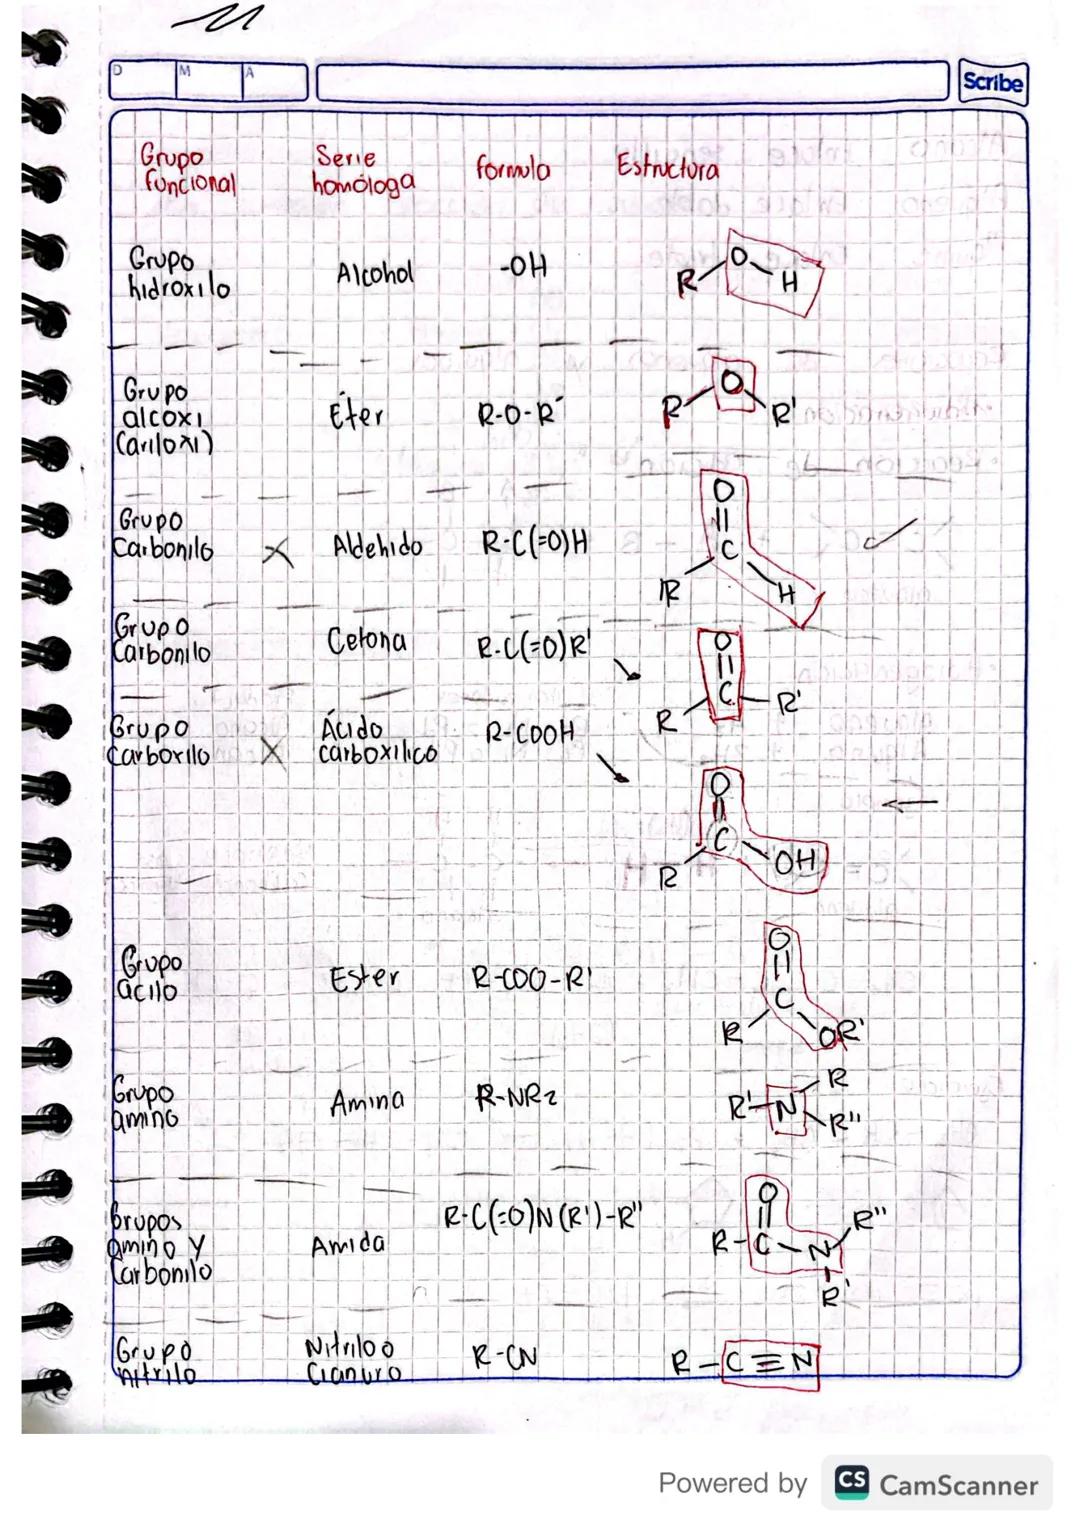 D M A
Scribe
Grupo funcional Serie homóloga formula Estructura
Grupo hidroxilo Alcohol -OH
R O H
Grupo alcoxi (ariloxi) Éter R-O-R'
R O R'
Grupo Carbonilo X Aldehido R-C(=O)H
O
C
R H
Grupo Carbonilo Cetona R-C(=O)R'
O
R C R'
Grupo Carboxilo X Ácido carboxilico R-COOH
O
C
R OH
Grupo acilo Ester R-COO-R'
O
C
R OR'
Grupo amino Amina R-NR2
R
R'-N
R"
Grupos amino y Carbonilo Amida R-C(=O)N(R')-R"
O R"
R-C-N
R'
Grupo nitrilo Nitrilo o Cianuro R-CN R-C≡N
Powered by CS CamScanner